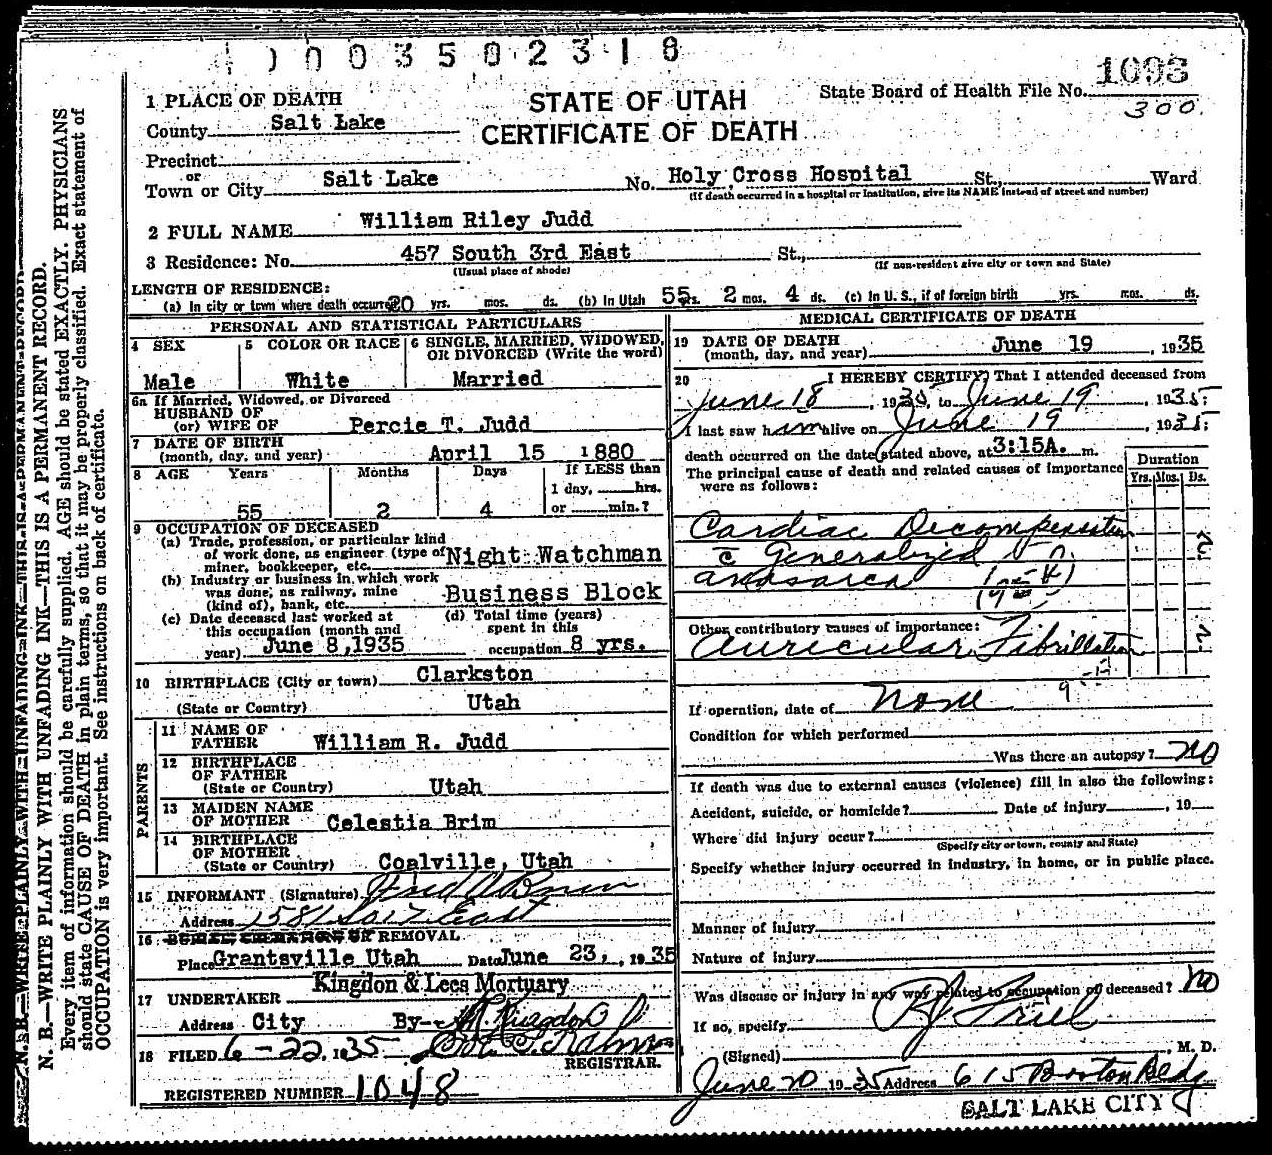 0003502318
1 PLACE OF DEATH
County Salt Lake
STATE OF UTAH
CERTIFICATE OF DEATH
State Board of Health File No. 1093
300.
Precinct
or
Town or City Salt Lake No. Holy Cross Hospital St., Ward
(If death occurred in a hospital or institution, give its NAME instead of street and number)
2 FULL NAME William Riley Judd
3 Residence: No. 457 South 3rd East St.,
(Usual place of abode) (If non-resident give city or town and State)
LENGTH OF RESIDENCE:
(a) In city or town where death occurred 20 yrs. mos. ds. (b) In Utah 55 yrs. 2 mos. 4 ds. (c) In U. S., if of foreign birth yrs. mos. ds.
PERSONAL AND STATISTICAL PARTICULARS
4 SEX
Male
5 COLOR OR RACE
White
6 SINGLE, MARRIED, WIDOWED,
OR DIVORCED (Write the word)
Married
6a If Married, Widowed, or Divorced
HUSBAND OF
(or) WIFE OF Percie T. Judd
7 DATE OF BIRTH
(month, day, and year) April 15 1880
8 AGE Years Months Days If LESS than
1 day, hrs.
55 2 4 or min.?
9 OCCUPATION OF DECEASED
(a) Trade, profession, or particular kind
of work done, as engineer (type of
miner, bookkeeper, etc. Night Watchman
(b) Industry or business in which work
was done, as railway, mine
(kind of), bank, etc. Business Block
(c) Date deceased last worked at
this occupation (month and
year) June 8, 1935
(d) Total time (years)
spent in this
occupation 8 yrs.
10 BIRTHPLACE (City or town) Clarkston
(State or Country) Utah
PARENTS
11 NAME OF
FATHER William R. Judd
12 BIRTHPLACE
OF FATHER
(State or Country) Utah
13 MAIDEN NAME
OF MOTHER Celestia Brim
14 BIRTHPLACE
OF MOTHER
(State or Country) Coalville, Utah
15 INFORMANT (Signature)
Address 1581 So 17 East
16 BURIAL, CREMATION OR REMOVAL
Place Grantsville Utah Date June 23, 1935
Kingdon & Lees Mortuary
17 UNDERTAKER
Address City By Kingdon
18 FILED 6-22 1935
REGISTRAR.
REGISTERED NUMBER 1048
MEDICAL CERTIFICATE OF DEATH
19 DATE OF DEATH
(month, day, and year) June 19, 1935
20 I HEREBY CERTIFY, That I attended deceased from
June 18, 1935, to June 19, 1935;
I last saw him alive on June 19, 1935;
death occurred on the date stated above, at 3:15A. m.
The principal cause of death and related causes of importance
were as follows:
Duration
Yrs. Mos. Ds.
Cardiac Decompensation
c̄ Generalized
anasarca
Other contributory causes of importance:
Auricular Fibrillation
If operation, date of None
Condition for which performed
Was there an autopsy? No
If death was due to external causes (violence) fill in also the following:
Accident, suicide, or homicide? Date of injury , 19
Where did injury occur?
(Specify city or town, county and State)
Specify whether injury occurred in industry, in home, or in public place.
Manner of injury
Nature of injury
Was disease or injury in any way related to occupation of deceased? No
If so, specify
(Signed) , M. D.
June 20 1935 Address 615 Boston Bldg
SALT LAKE CITY
N. B.—WRITE PLAINLY WITH UNFADING INK—THIS IS A PERMANENT RECORD.
Every item of information should be carefully supplied. AGE should be stated EXACTLY. PHYSICIANS
should state CAUSE OF DEATH in plain terms, so that it may be properly classified. Exact statement of
OCCUPATION is very important. See instructions on back of certificate.